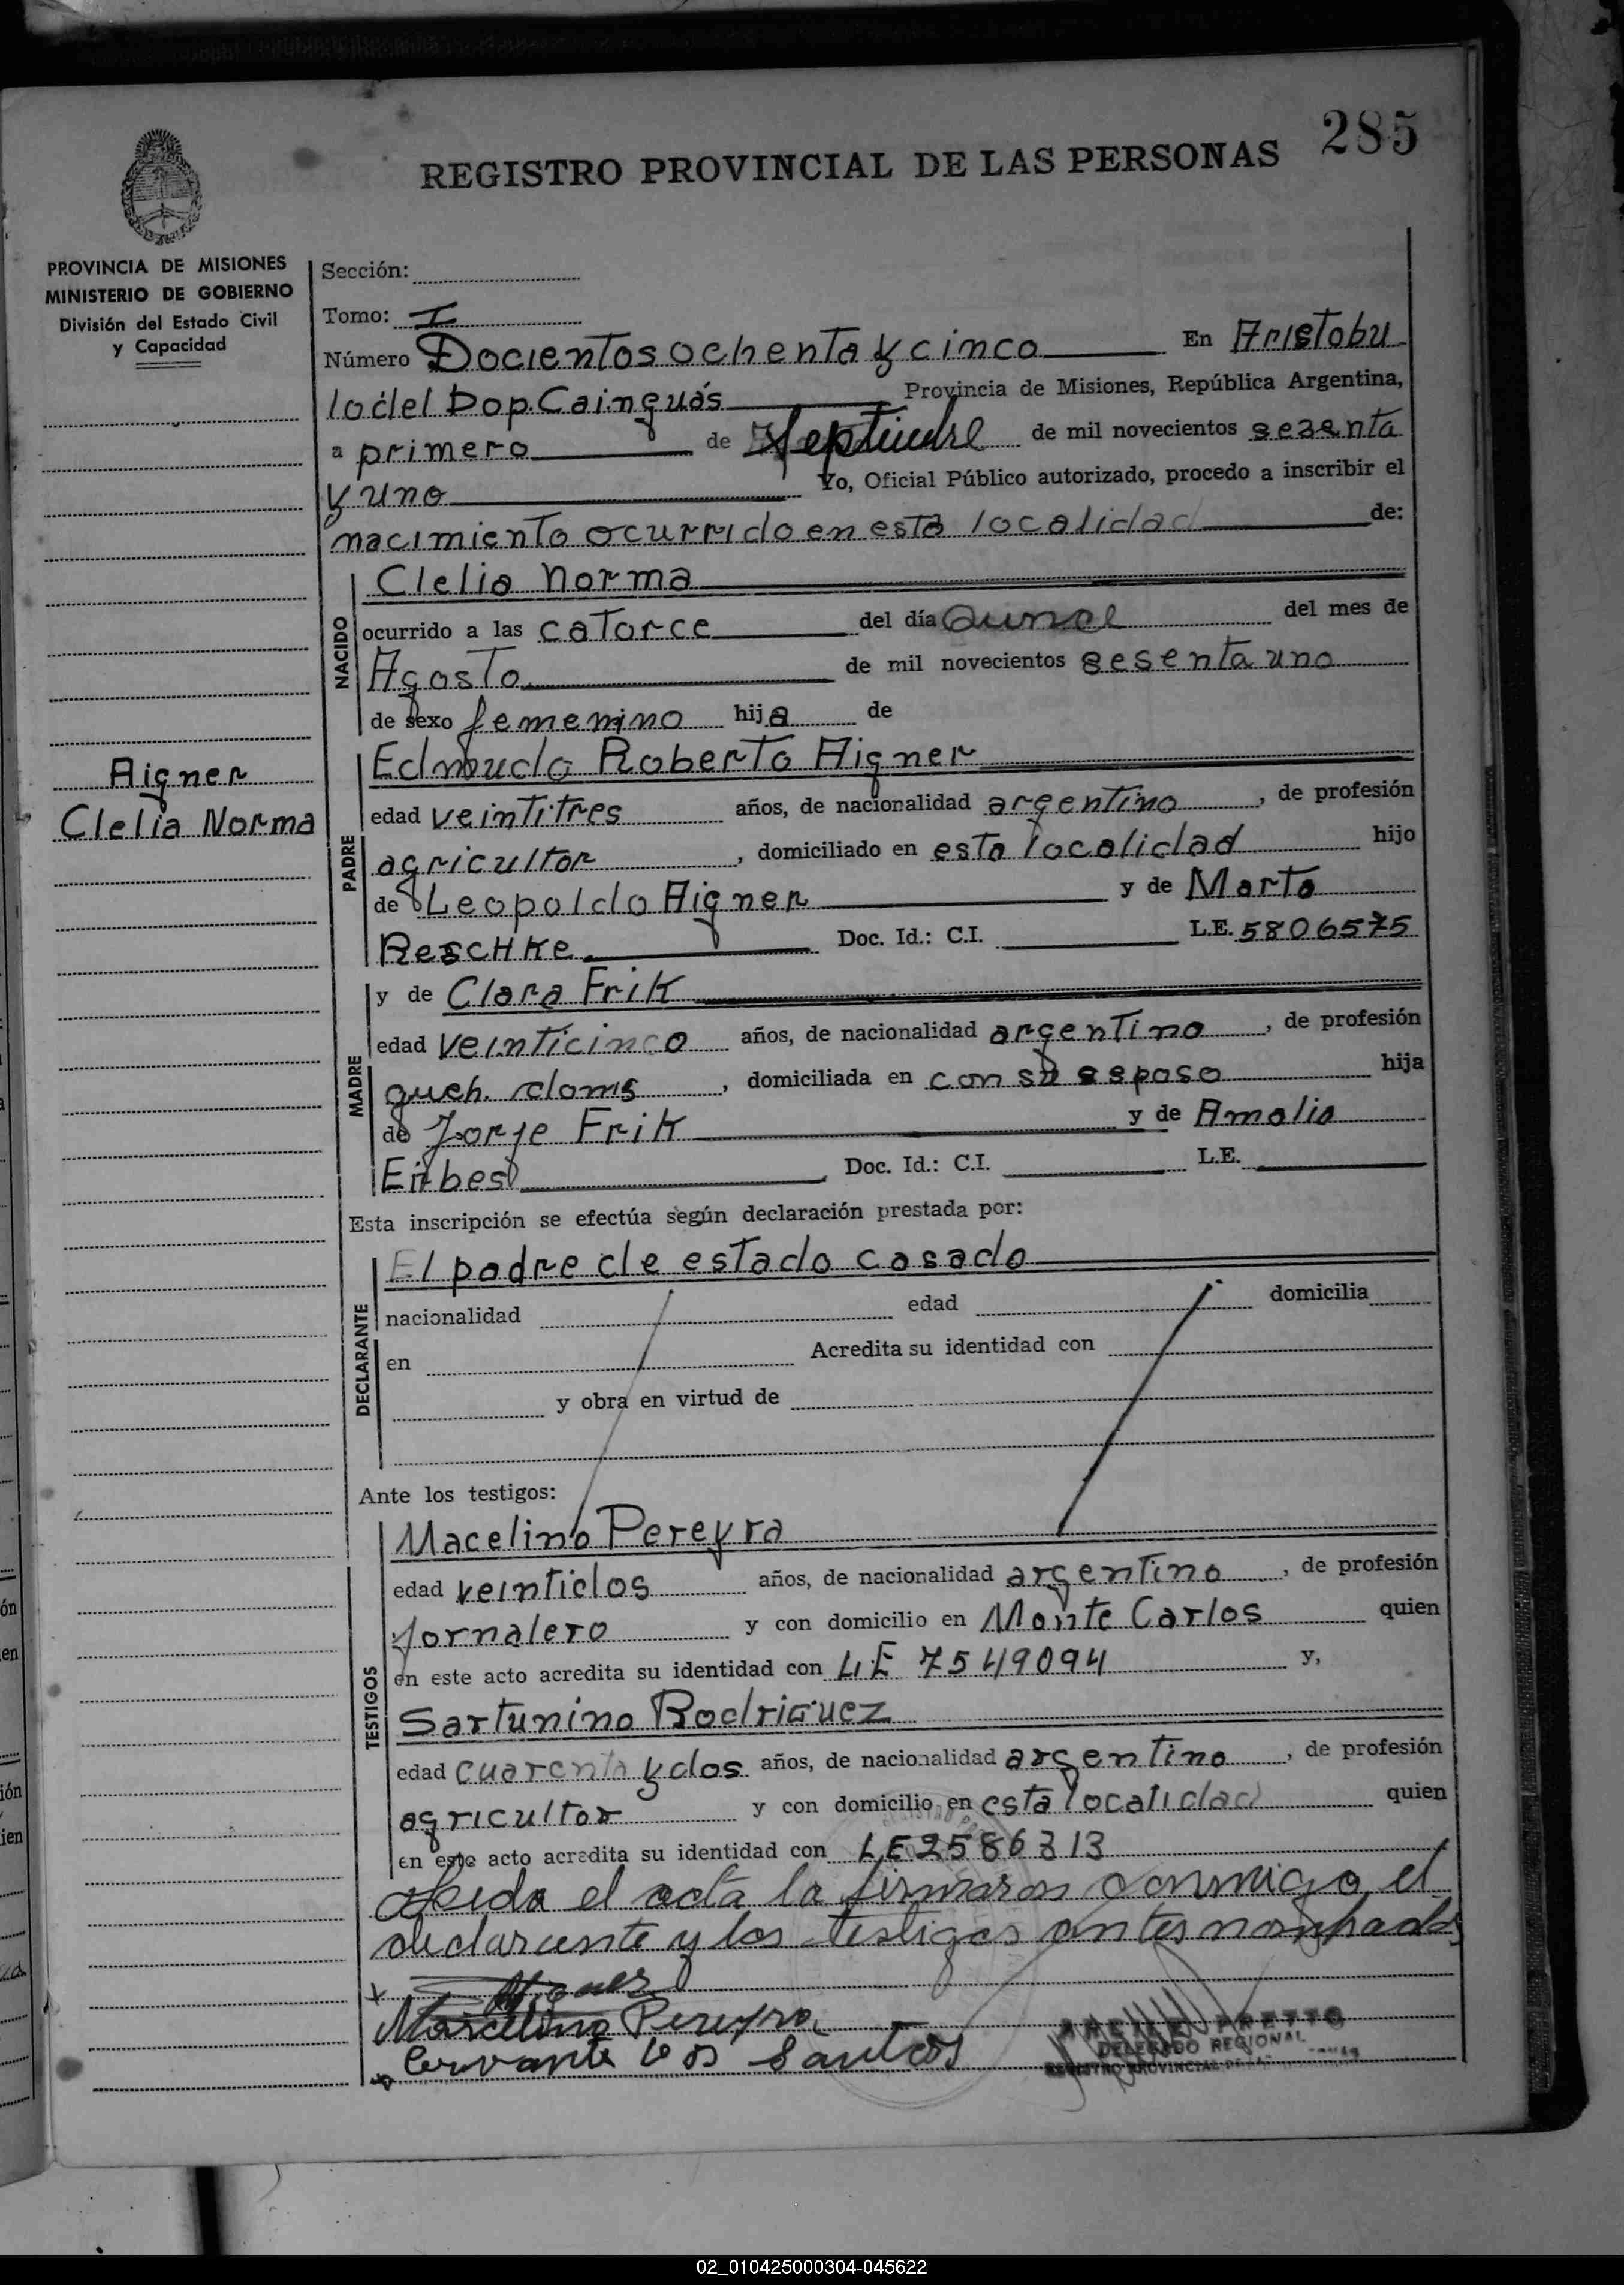 285
REGISTRO PROVINCIAL DE LAS PERSONAS
PROVINCIA DE MISIONES
MINISTERIO DE GOBIERNO
División del Estado Civil
y Capacidad
Aigner
Clelia Norma
Sección:
Tomo: I
Número Docientos ochenta y cinco En Aristobu
lo del Dop. Cainguás Provincia de Misiones, República Argentina,
a primero de Septiembre de mil novecientos sesenta
y uno Yo, Oficial Público autorizado, procedo a inscribir el
nacimiento ocurrido en esta localidad de:
NACIDO
Clelia Norma
ocurrido a las catorce del día Quince del mes de
Agosto de mil novecientos sesenta uno
de sexo femenino hija de
PADRE
Edmundo Roberto Aigner
edad veintitres años, de nacionalidad argentino, de profesión
agricultor, domiciliado en esta localidad hijo
de Leopoldo Aigner y de Marta
Reschke Doc. Id.: C.I. L.E. 5806575
MADRE
y de Clara Frik
edad veinticinco años, de nacionalidad argentino, de profesión
queh. doms, domiciliada en con su esposo hija
de Jorje Frik y de Amalia
Doc. Id.: C.I. L.E.
Esta inscripción se efectúa según declaración prestada por:
DECLARANTE
El padre de estado casado
nacionalidad edad domicilia
en Acredita su identidad con
y obra en virtud de
Ante los testigos:
TESTIGOS
Macelino Pereyra
edad veintidos años, de nacionalidad argentino, de profesión
Jornalero y con domicilio en Monte Carlos quien
en este acto acredita su identidad con L.E 7549094 y,
Sartunino Rodriguez
edad cuarenta y dos años, de nacionalidad argentino, de profesión
agricultor y con domicilio en esta localidad quien
en este acto acredita su identidad con L.E 2586313
Leida el acta la firmaron conmigo el
declarante y los testigos antes nombrados
Aigner
Marcelino Pereyra
Santos
PRETTO
DELEGADO REGIONAL
REGISTRO PROVINCIAL
02_010425000304-045622